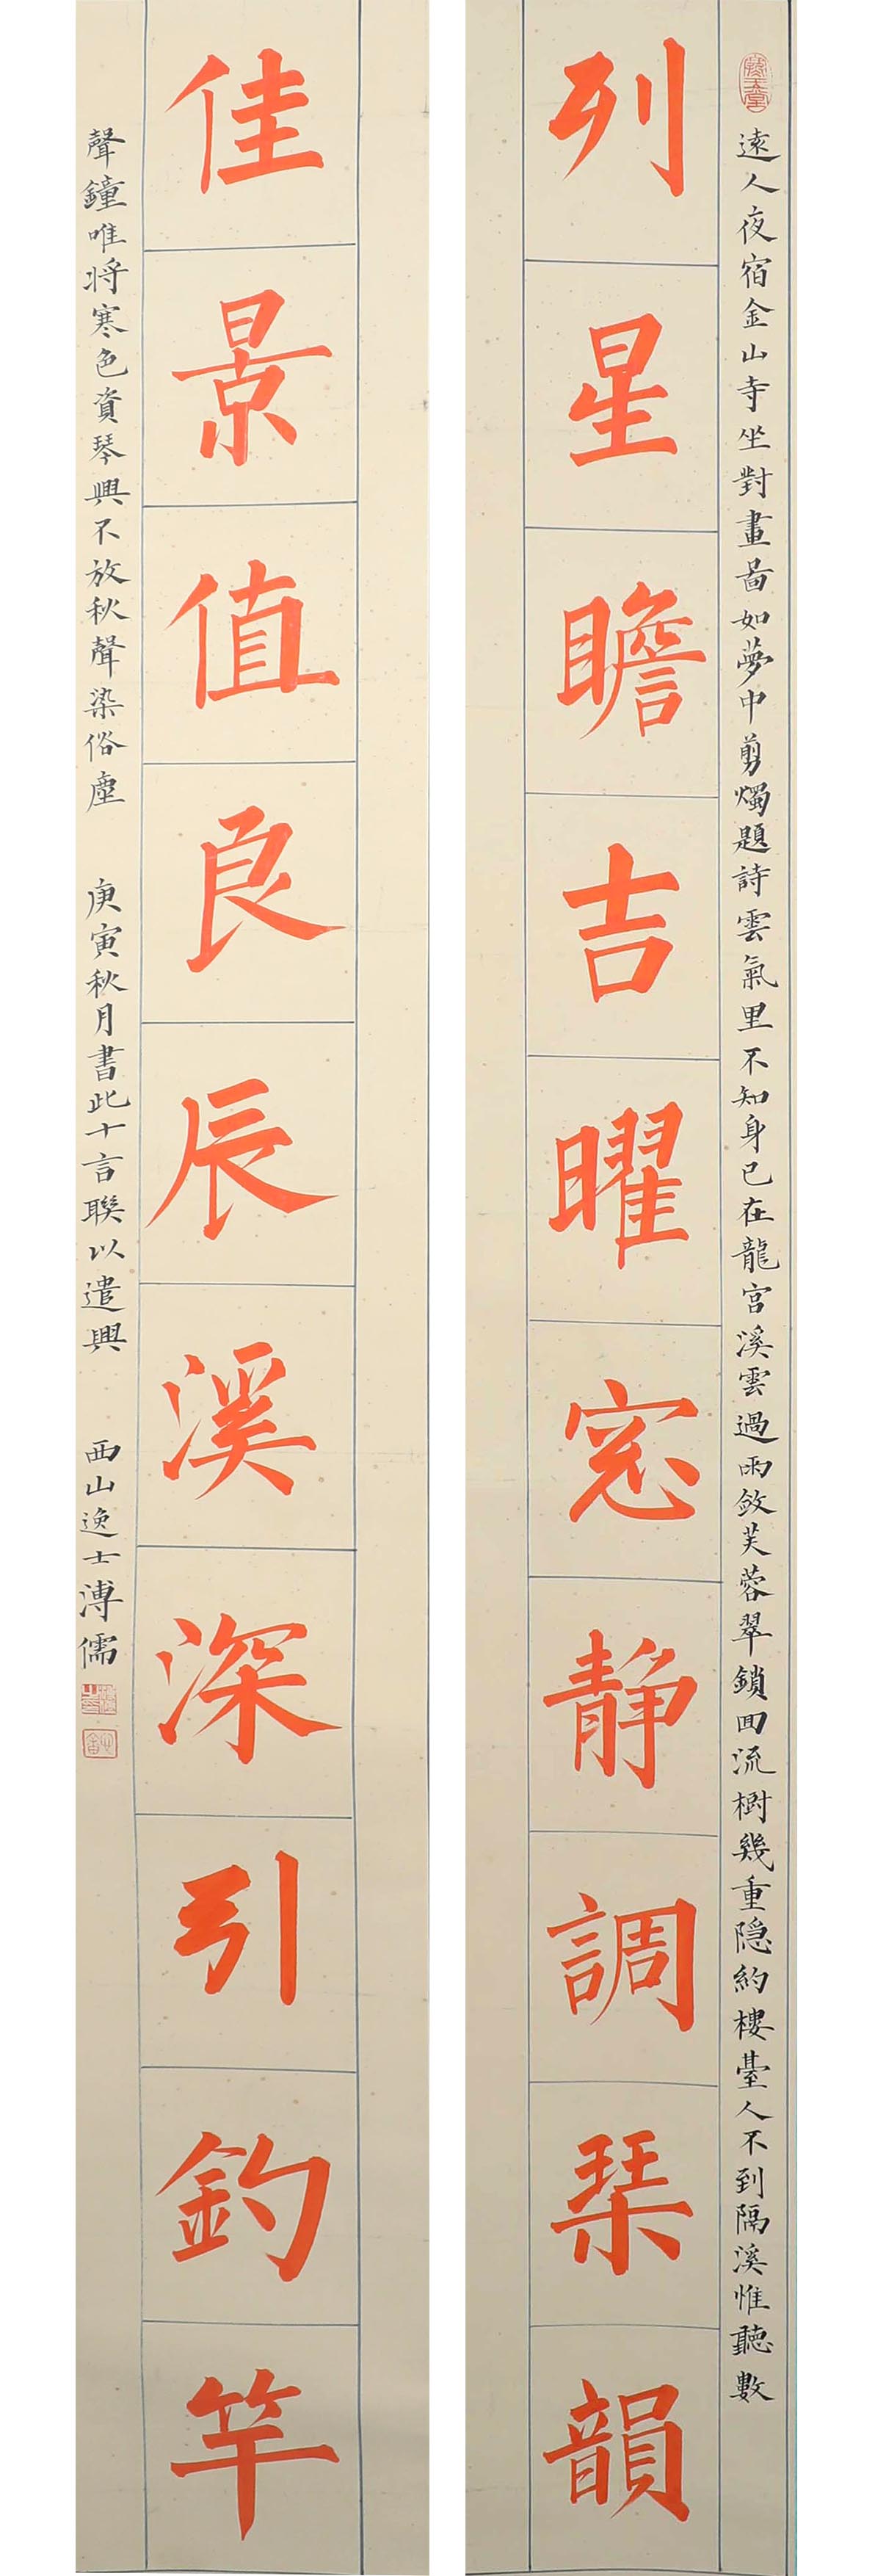 遠人夜宿金山寺坐對畫啚如夢中剪燭題詩雲氣里不知身已在龍宮溪雲過雨斂芙蓉翠鎖回流樹幾重隐約樓臺人不到隔溪惟聽數
列星瞻吉曜窓静調琹韻
佳景值良辰溪深引釣竿
聲鐘唯将寒色資琴興不放秋聲染俗塵
庚寅秋月書此十言聯以遣興
西山逸士溥儒